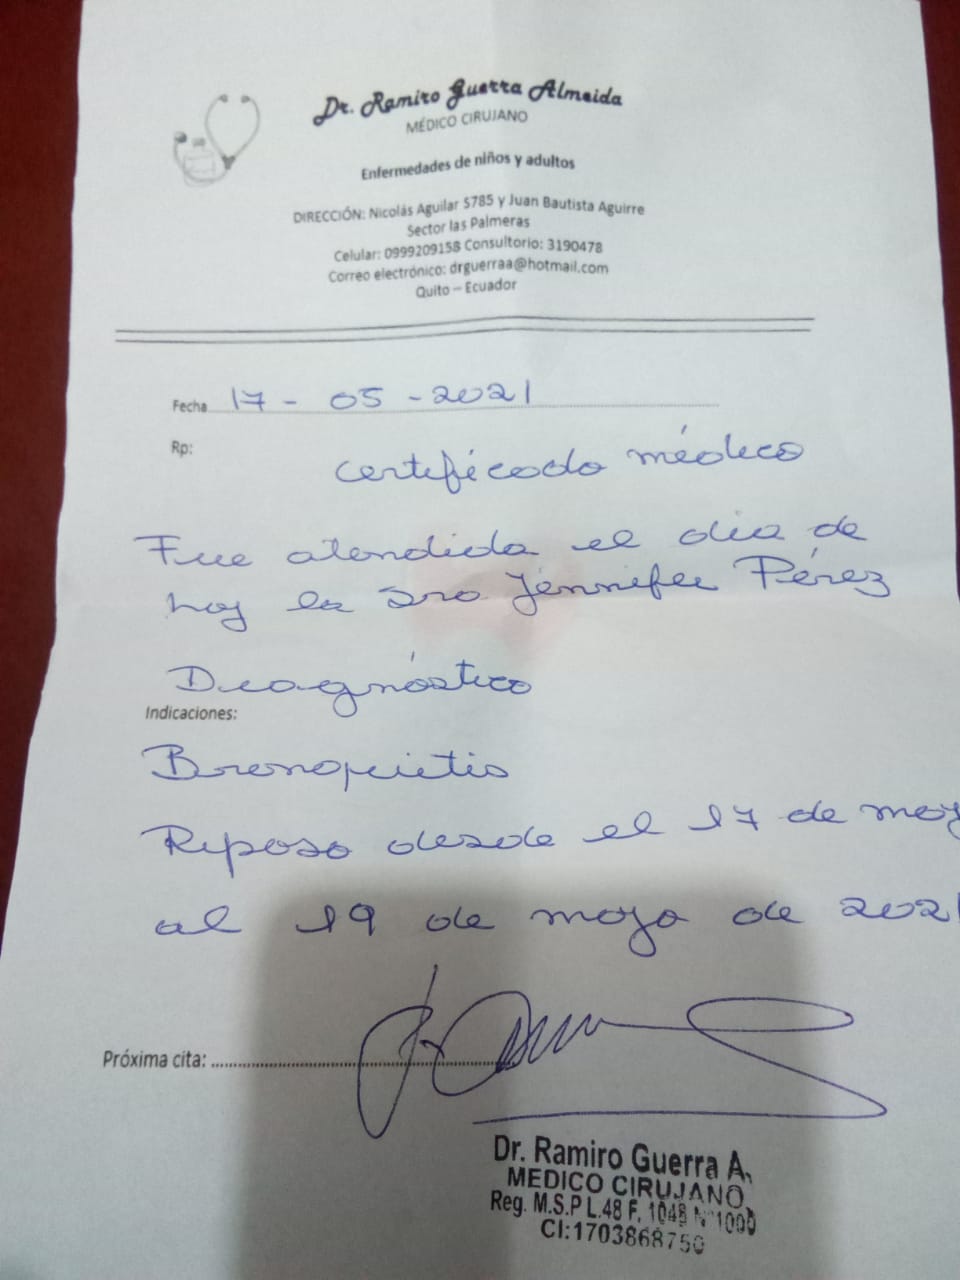 Dr. Ramiro Guerra Almeida
MÉDICO CIRUJANO
Enfermedades de niños y adultos
DIRECCIÓN: Nicolás Aguilar S785 y Juan Bautista Aguirre
Sector las Palmeras
Celular: 0999209158 Consultorio: 3190478
Correo electrónico: drguerraa@hotmail.com
Quito – Ecuador
Fecha 17 - 05 - 2021
Rp:
Certificado médico
Fue atendida el día de
hoy la Sra Jennifer Pérez
Diagnóstico
Indicaciones:
Bronquitis
Reposo desde el 17 de may
al 19 de mayo de 2021
Próxima cita:
Dr. Ramiro Guerra A.
MEDICO CIRUJANO
Reg. M.S.P L.48 F. 1048 N°1000
CI:1703868750